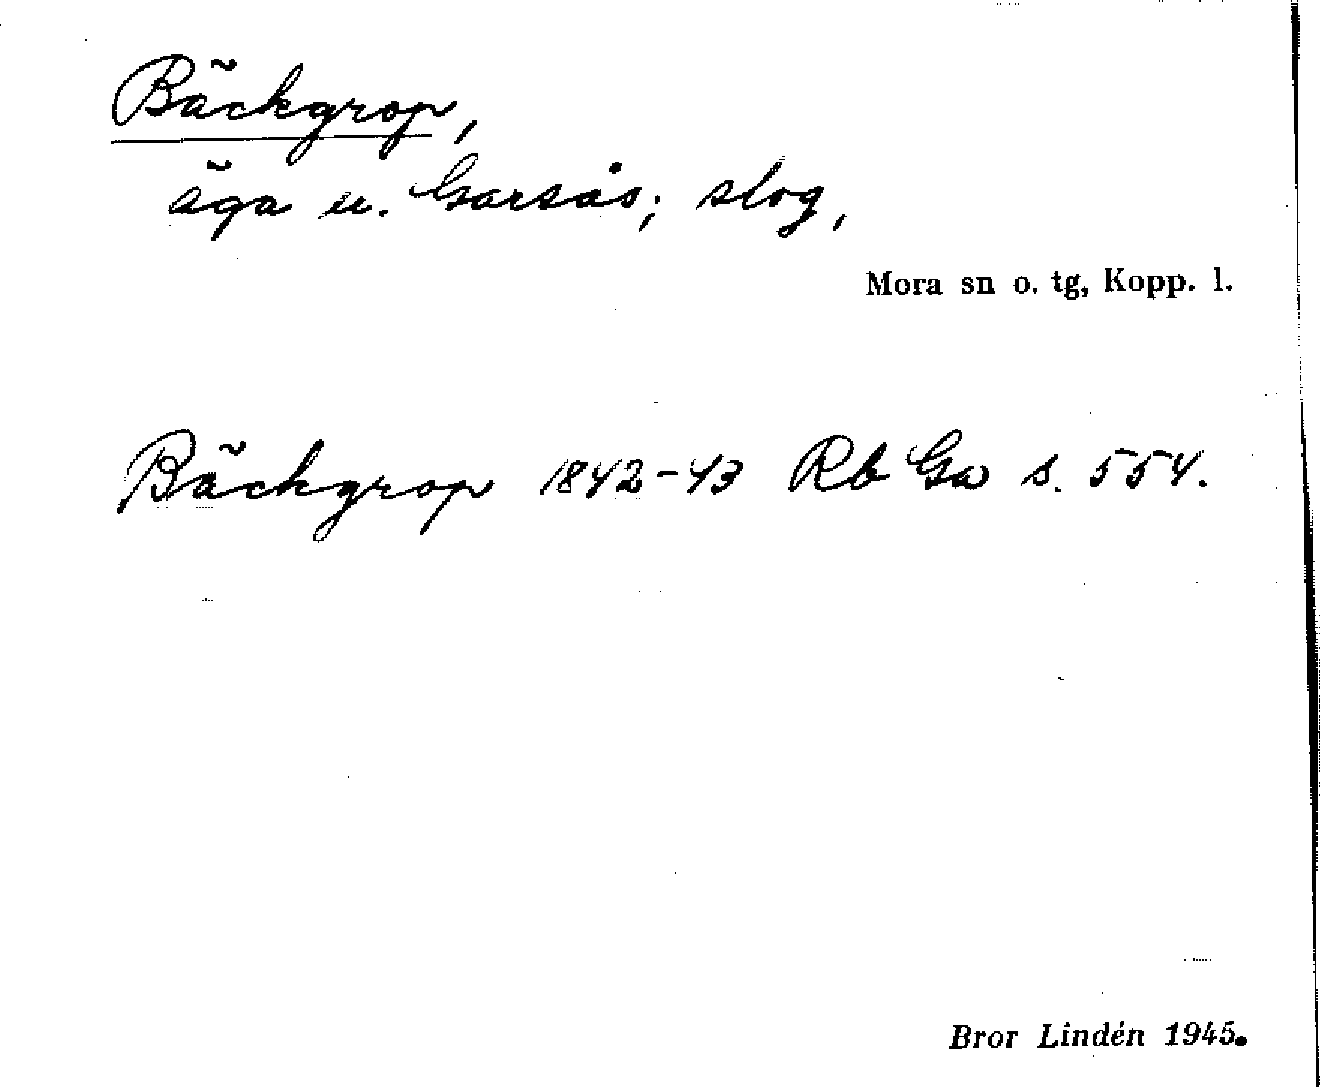 Bäckgrop,
äga u. Garsås; slog,
Mora sn o. tg, Kopp. l.
Bäckgrop 1842-43 Rb Ga s. 554.
Bror Lindén 1945.